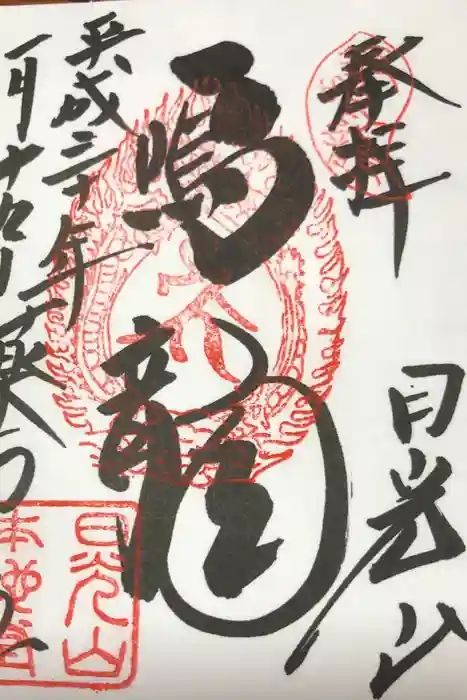 奉拝
日光山
鳴龍
平成三十年
一月十四日
日光山